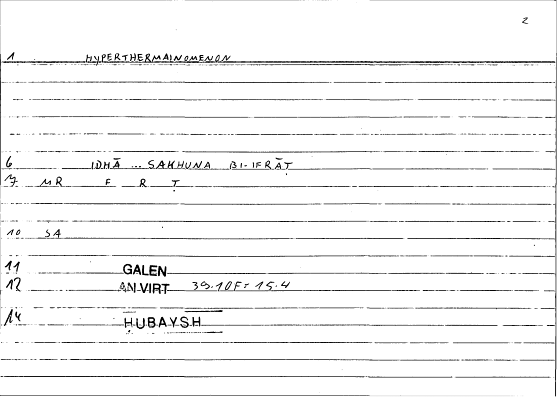 2
1 HYPERTHERMAINOMENON
6 IDHĀ ... SAKHUNA BI-IFRĀṬ
7 MR F R Ṭ
10 SA
11 GALEN
12 AN VIRT 39.10F = 15.4
14 ḤUBAYSH